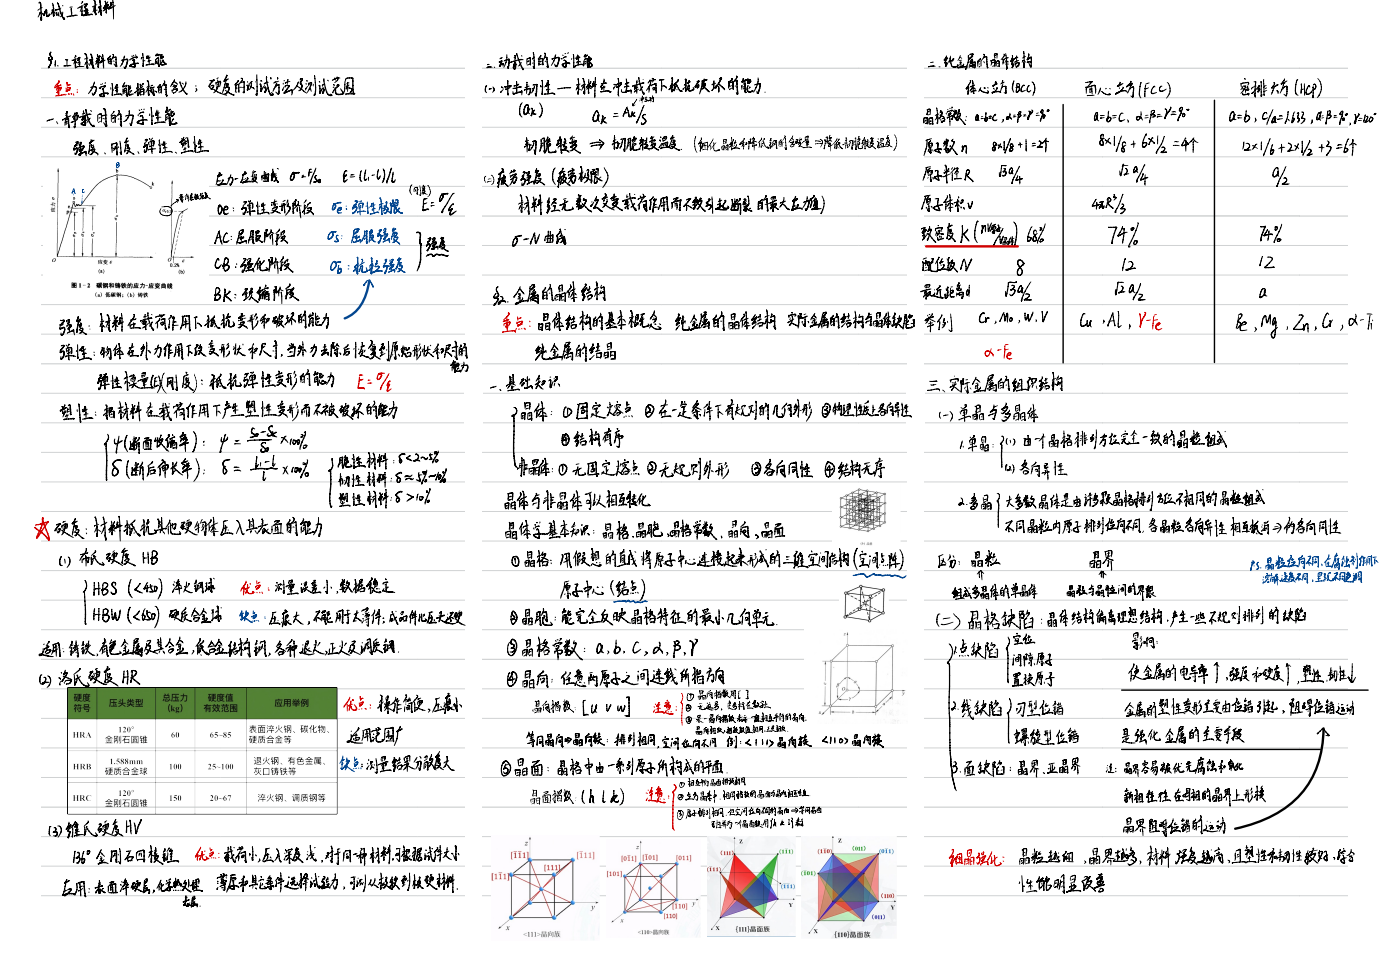 机械工程材料
§1.工程材料的力学性能
重点：力学性能指标的含义；硬度的测试方法及测试范围
一、静载时的力学性能
强度、刚度、弹性、塑性
图 1-2 碳钢和铸铁的应力-应变曲线
(a) 低碳钢；(b) 铸铁
应力-应变曲线 σ=F/S₀ ε=(l₁-l)/l
oe：弹性变形阶段 σe：弹性极限 E=σ/ε
AC：屈服阶段 σs：屈服强度
CB：强化阶段 σb：抗拉强度
强度
BK：颈缩阶段
强度：材料在载荷作用下抵抗变形和破坏的能力
弹性：物体在外力作用下改变形状和尺寸，当外力去除后恢复到原始形状和尺寸的能力
弹性模量(E)(刚度)：抵抗弹性变形的能力 E=σ/ε
塑性：指材料在载荷作用下产生塑性变形而不被破坏的能力
ψ(断面收缩率)：ψ=(S₀-Sc)/S₀×100%
δ(断后伸长率)：δ=(l₁-l)/l×100%
脆性材料：δ<2~5%
韧性材料：δ≈5%~10%
塑性材料：δ>10%
☆硬度：材料抵抗其他硬物体压入其表面的能力
(1) 布氏硬度 HB
HBS (<450) 淬火钢球 优点：测量误差小，数据稳定
HBW (<650) 硬质合金球 缺点：压痕大，不能用于太薄件，成品件
适用：铸铁，有色金属及其合金，低合金结构钢，各种退火、正火及调质钢.
(2) 洛氏硬度 HR
硬度符号 压头类型 总压力(kg) 硬度值有效范围 应用举例
HRA 120°金刚石圆锥 60 65~85 表面淬火钢、碳化物、硬质合金等
HRB 1.588mm硬质合金球 100 25~100 退火钢、有色金属、灰口铸铁等
HRC 120°金刚石圆锥 150 20~67 淬火钢、调质钢等
优点：操作简便，压痕小
适用范围广
缺点：测量结果分散度大
(3) 维氏硬度 HV
136°金刚石四棱锥 优点：载荷小，压入深度浅，对于同一种材料，可根据试件大小
应用：表面淬硬层，化学热处理 薄厚和其它条件选择试验力，可以从极软到极硬材料.
二、动载时的力学性能
(一)冲击韧性—材料在冲击载荷下抵抗破坏的能力.
(ak) ak=Ak/S
韧脆转变 ⇒ 韧脆转变温度
(二)疲劳强度（疲劳极限）
材料经无数次交变载荷作用而不致引起断裂的最大应力值）
σ-N曲线
§2. 金属的晶体结构
重点：晶体结构的基本概念 纯金属的晶体结构 实际金属的结构与晶体缺陷
纯金属的结晶
一、基础知识
晶体：①固定熔点 ②在一定条件下有规则的几何外形 ③物理性质上各向异性
④结构有序
非晶体：①无固定熔点 ②无规则外形 ③各向同性 ④结构无序
晶体与非晶体可以相互转化
晶体学基本知识：晶格、晶胞、晶格常数、晶向、晶面
①晶格：用假想的直线将原子中心连接起来形成的三维空间结构(空间点阵)
原子中心(结点)
②晶胞：能完全反映晶格特征的最小几何单元.
③晶格常数：a, b, c, α, β, γ
④晶向：任意两原子之间连线所指方向
晶向指数 [u v w] 注意：
等同晶向⇒晶向族：排列相同，空间位向不同 例：<111>晶向族 <110>晶向族
⑤晶面：晶格中由一系列原子所构成的平面.
晶面指数：(h l k) 注意：
<111>晶向族
<110>晶向族
{111}晶面族
{110}晶面族
二、纯金属的晶体结构
体心立方(BCC) 面心立方(FCC) 密排六方(HCP)
晶格常数： a=b=c, α=β=γ=90° a=b=c, α=β=γ=90° a=b, c/a=1.633, α=β=90°, γ=120°
原子数 n 8×1/8+1=2个 8×1/8+6×1/2=4个 12×1/6+2×1/2+3=6个
原子半径R √3a/4 √2a/4 a/2
原子体积v 4πR³/3
致密度K 68% 74% 74%
配位数N 8 12 12
最近距离d √3a/2 √2a/2 a
举例 Cr, Mo, W, V Cu, Al, γ-Fe Be, Mg, Zn, Cr, α-Ti
α-Fe
三、实际金属的组织结构
(一) 单晶与多晶体
1.单晶：(1) 由一个晶格排列方位完全一致的晶粒组成
(2) 各向异性
2.多晶 大多数晶体是由许多晶格排列方位不相同的晶粒组成
不同晶粒内原子排列位向不同，各晶粒各向异性相互抵消⇒伪各向同性
区分：晶粒 晶界
组成多晶体的单晶体 晶粒与晶粒间的界面
P.S. 晶粒位向不同，在腐蚀剂作用下
(二) 晶格缺陷：晶体结构偏离理想结构，产生一些不规则排列的缺陷
1.点缺陷 空位
间隙原子
置换原子
影响：
使金属的电导率↑，强度和硬度↑，塑性、韧性↓
2.线缺陷 刃型位错
螺旋型位错
金属的塑性变形主要由位错引起，阻碍位错运动
是强化金属的主要手段
3.面缺陷：晶界、亚晶界 注：晶界容易被优先腐蚀和氧化
新相往往在母相的晶界上形核
晶界阻碍位错的运动
细晶强化：晶粒越细，晶界越多，材料强度越高，同塑性和韧性较好，综合
性能明显改善